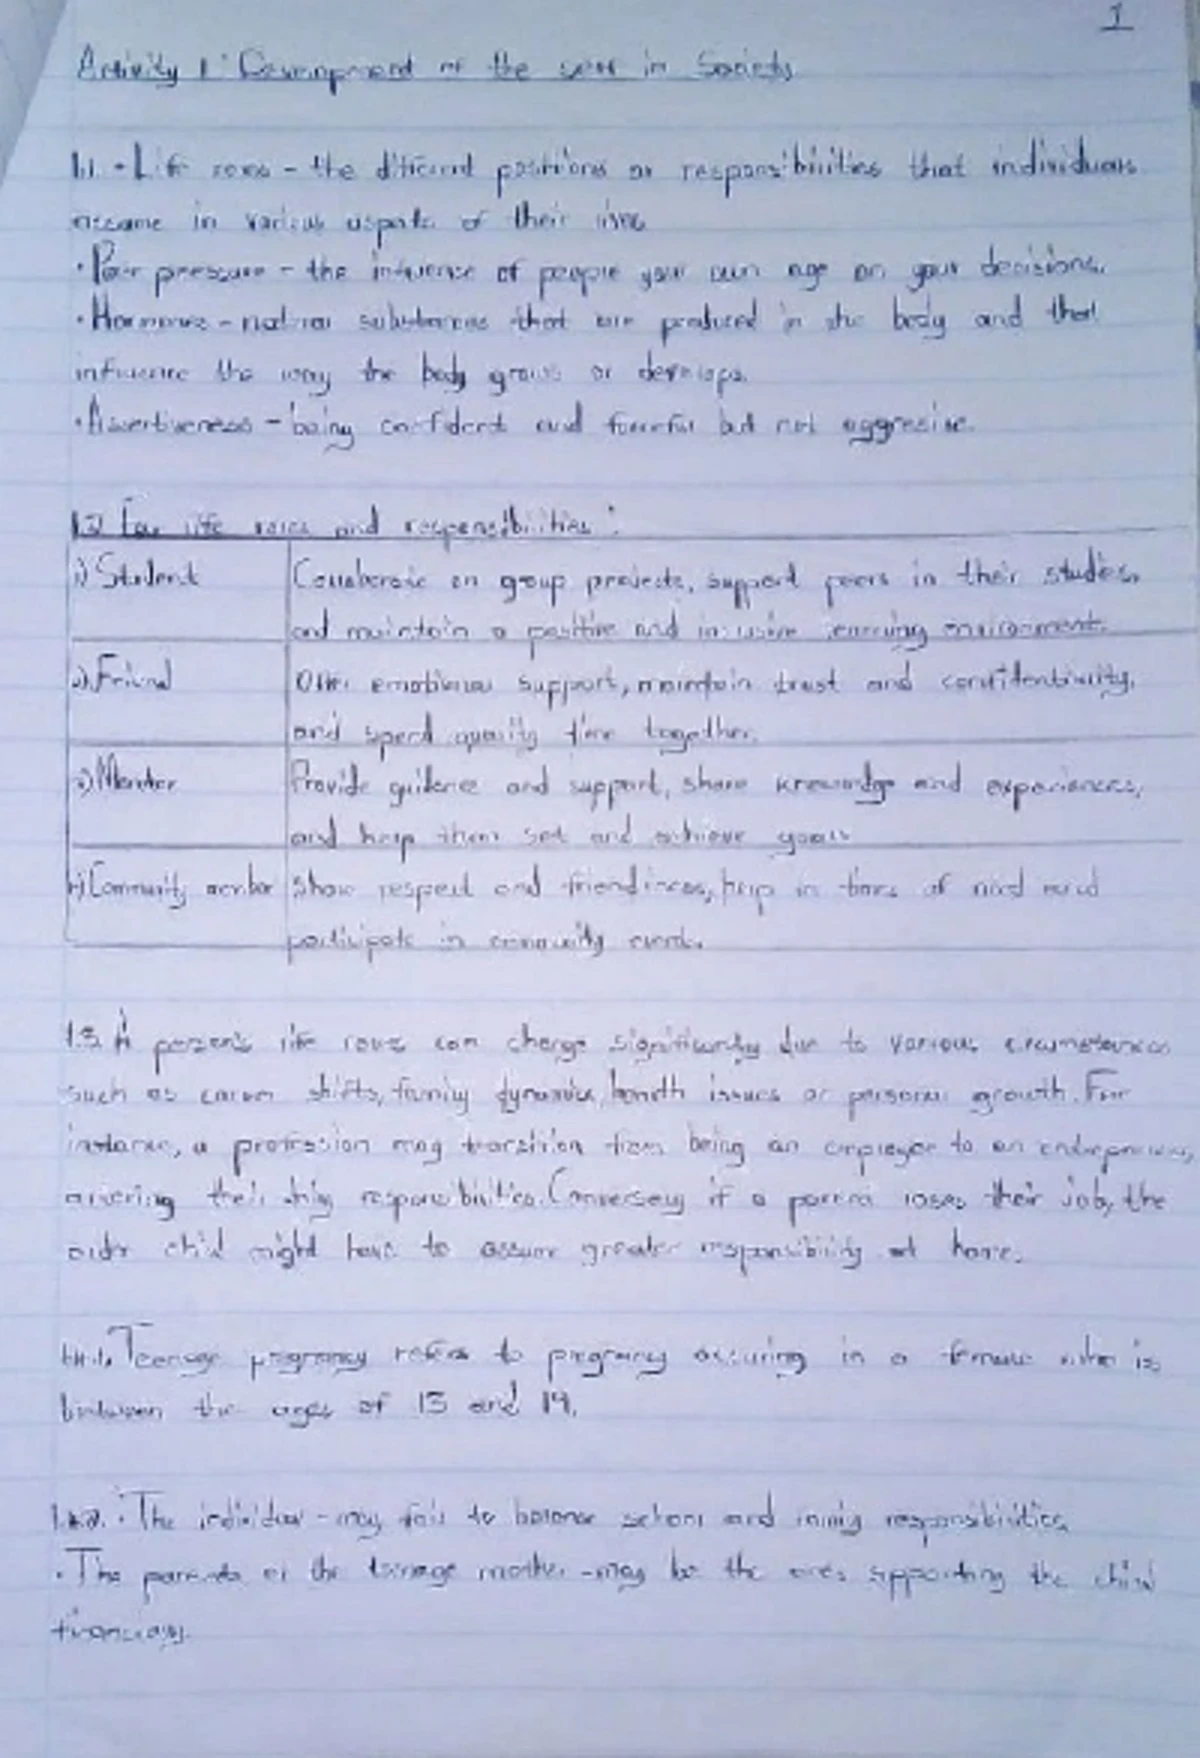 1
Activity 1: Development of the self in Society
1.1. • Life roles - the different positions or responsibilities that individuals
assume in various aspects of their lives
• Peer pressure - the influence of people your own age on your decisions.
• Hormones - natural substances that are produced in the body and that
influence the way the body grows or develops.
• Assertiveness - being confident and forceful but not aggresive.
1.2 Four life roles and responsibilities:
1) Student
Collaborate on group projects, support peers in their studies,
and maintain a positive and inclusive learning environment.
2) Friend
Offer emotional support, maintain trust and confidentiality,
and spend quality time together.
3) Mentor
Provide guidence and support, share knowledge and experiences,
and help them set and achieve goals
4) Community member
Show respect and friendliness, help in times of need and
participate in community events.
1.3. A person's life roles can change significantly due to various circumstances
such as career shifts, family dynamics, health issues or personal growth. For
instance, a profession may transition from being an employee to an entrepreneur,
altering their daily responsibilities. Conversely if a parent loses their job, the
older child might have to assume greater responsibility at home.
1.4.1. Teenage pregnancy refers to pregnancy occuring in a female who is
between the ages of 13 and 19.
1.4.2. • The individual - may fail to balance school and family responsibilities
• The parents of the teenage mother - may be the ones supporting the child
financially.